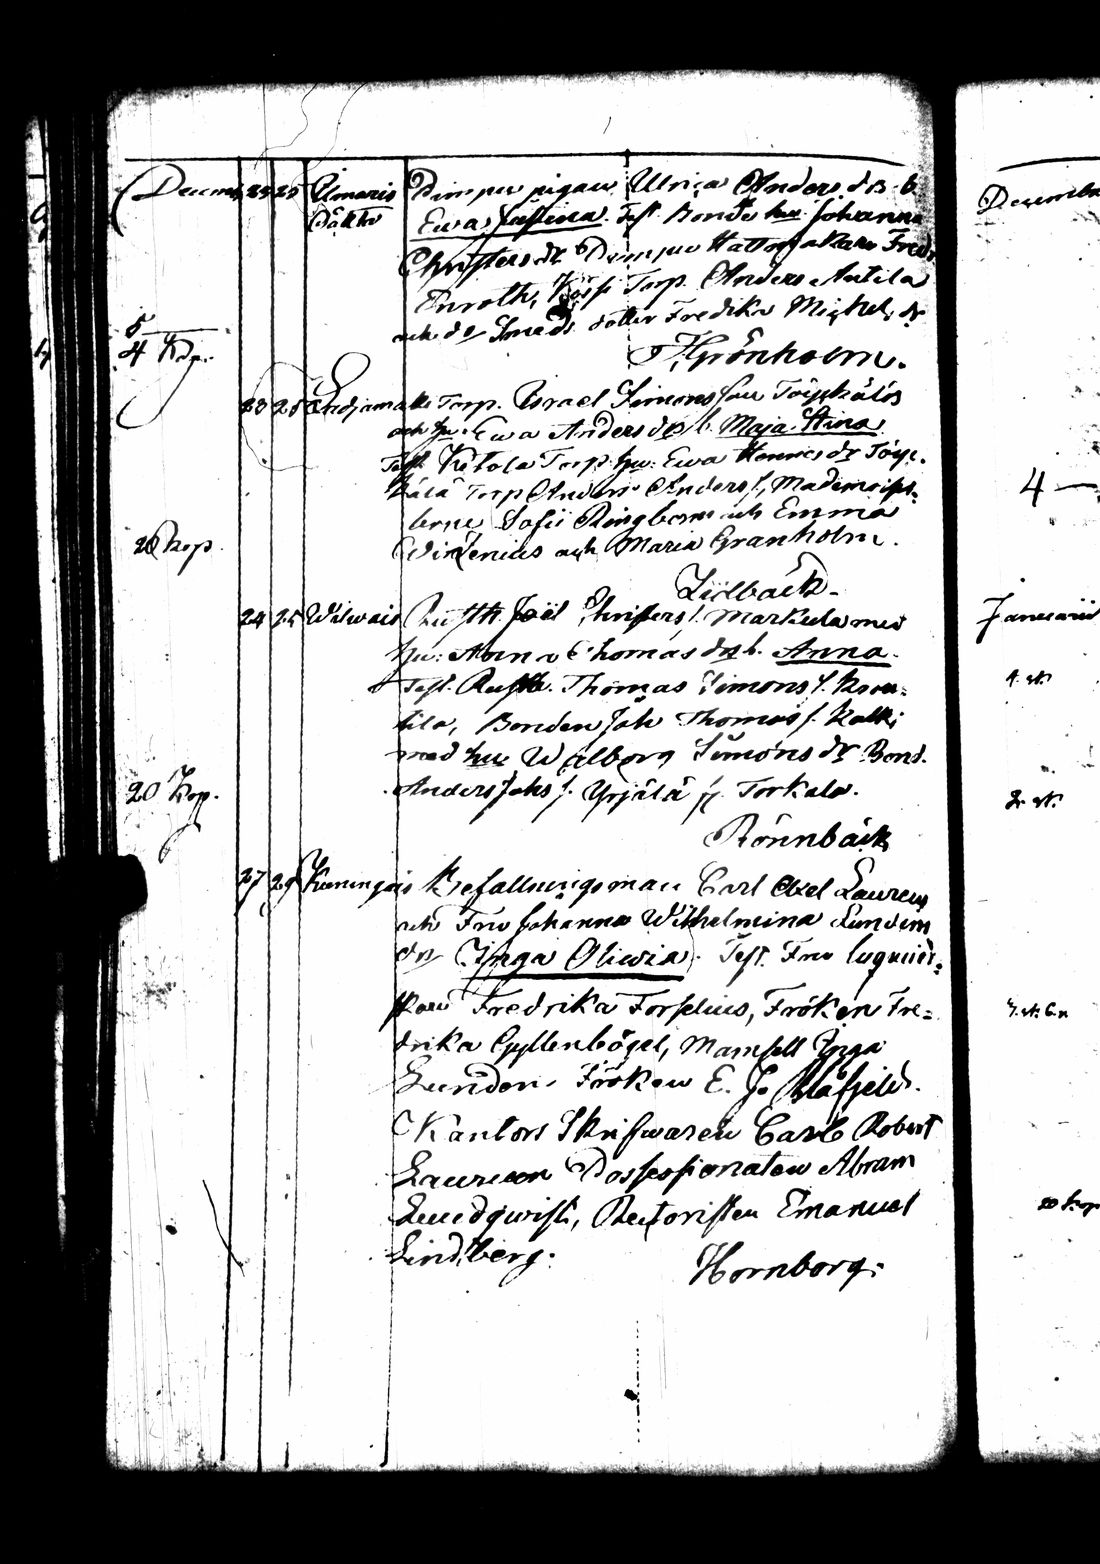 Decemb. 23 25 Umaris Pimpu pigan Ulrica Anders dr b.
Ewa Justina. Test. Bonde hu Johanna
Christers dr Pimpu Hattmakare Fred.
Enroth, Torp. Anders Antila
och dr Smeds dotter Fredrika Michels dr
5
4 Kop. Grönholm.
23 25 Torp. Israel Simons son Töyskälä
och hu. Ewa Anders dr b. Maja Stina.
Test. Ketola Torp. hu. Ewa Henrics dr Töys-
kälä Torp Anders Anders s., Mademoisel-
lerne Sofii Ringbom och Emma
20 Kop. och Maria Granholm.
Lidbäck.
24 25 Wilwais Rusth. Joël Christers s. Markula med
hu: Anna Thomas dr b. Anna.
Test. Rusth. Thomas Simons s.
Bonden Joh Thomas s.
med hu Walborg Simons dr Bond.
20 Kop. Anders Johs s. Yrjälä fr. Torkala.
Rönnbäck
27 29 Befallningsman Carl Axel Lauren
och Fru Johanna Wilhelmina
dr Inga Oliwia. Test. Fru
Fredrika Forselius, Fröken Fre-
drika Gyllenbögel, Mamsell Inga
Lunden, Fröken E. J. Blåfjeld.
Kantors Skrifwaren Carl Robert
Lauren Possessionaten Abram
Lundqwist, Emanuel
Lindberg.
Hornborg.
Desember
4 —
Januarii
20 Kop